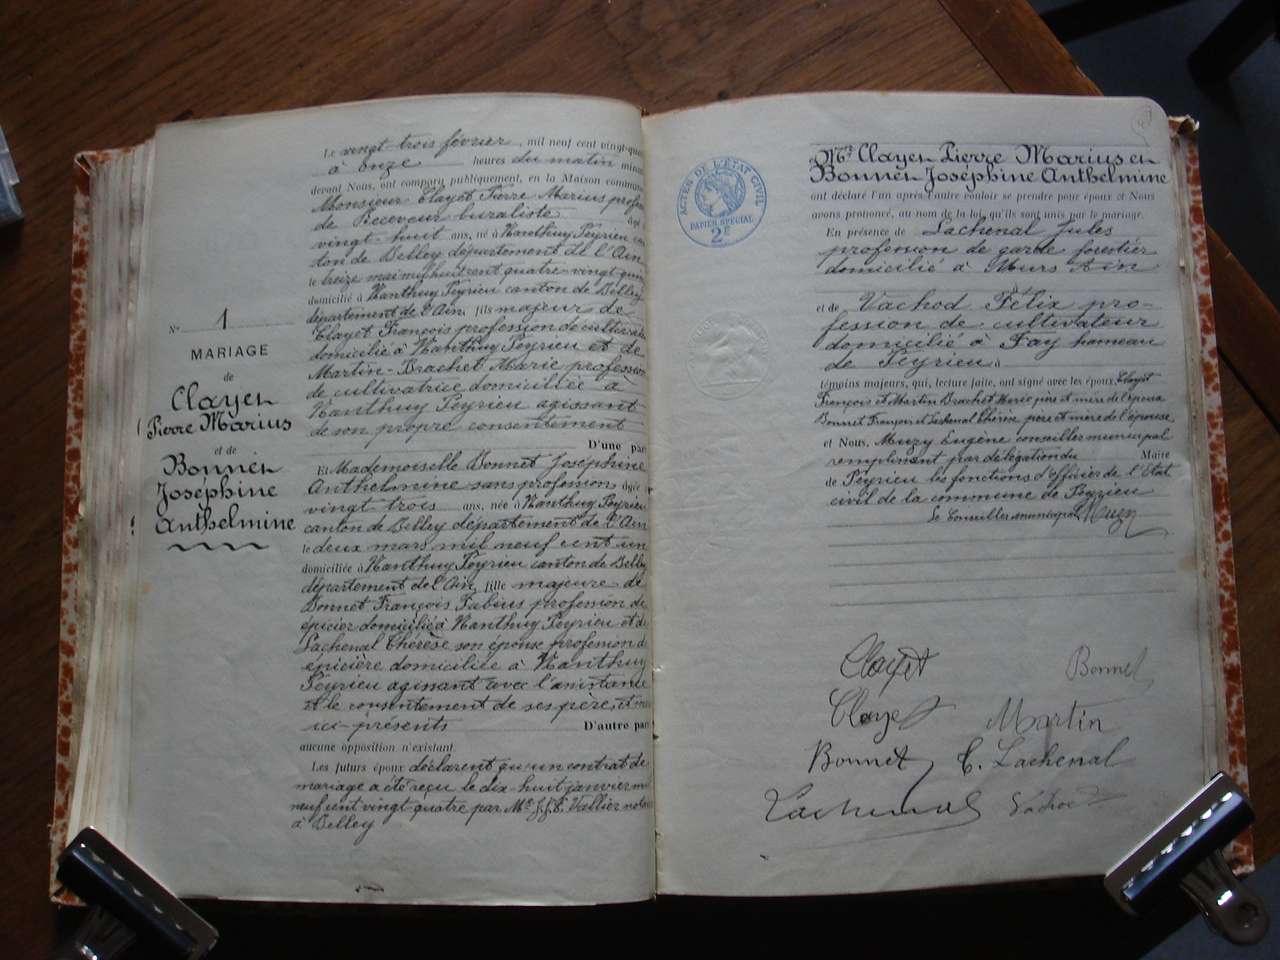 N° 1
MARIAGE
de
Clayet
Pierre Marius
et de
Bonnet
Joséphine
Anthelmine
Le vingt trois février, mil neuf cent vingt-quat
à onze heures du matin minut
devant Nous, ont comparu publiquement, en la Maison commune
Monsieur Clayet Pierre Marius profes
de Receveur buraliste âgé
vingt-huit ans, né à Nanthuy Peyrieu can
ton de Belley département de l'Ain
le treize mai mil huit cent quatre-vingt-quin
domicilié à Nanthuy Peyrieu canton de Belley
département de l'Ain, fils majeur de
Clayet François profession de cultivateur
domicilié à Nanthuy Peyrieu et de
Martin-Brachet Marie profession
de cultivatrice domiciliée à
Nanthuy Peyrieu agissant
de son propre consentement
D'une par
Et Mademoiselle Bonnet Joséphine
Anthelmine sans profession âgée
vingt trois ans, née à Nanthuy Peyrieu
canton de Belley département de l'Ain
le deux mars mil neuf cent un
domiciliée à Nanthuy Peyrieu canton de Belley
département de l'Ain, fille majeure de
Bonnet François Fabius profession de
épicier domicilié à Nanthuy Peyrieu et de
Lachenal Thérèse son épouse profession d
épicière domiciliée à Nanthuy
Peyrieu agissant avec l'assistance
et le consentement de ses père, et m
ici-présents D'autre par
aucune opposition n'existant
Les futurs époux déclarent qu'un contrat de
mariage a été reçu le dix-huit janvier m
neuf cent vingt-quatre par Me Vallier nota
à Belley
ACTES DE L'ÉTAT CIVIL
PAPIER SPÉCIAL
2F
Mr Clayet Pierre Marius et
Bonnet Joséphine Anthelmine
ont déclaré l'un après l'autre vouloir se prendre pour époux et Nous
avons prononcé, au nom de la loi, qu'ils sont unis par le mariage.
En présence de Lachenal Jules
profession de garde forestier
domicilié à Murs Ain
et de Vachod Félix pro-
fession de cultivateur
domicilié à Fay hameau
de Peyrieu
témoins majeurs, qui, lecture faite, ont signé avec les époux, Clayet
François et Martin Brachet Marie père et mère de l'époux
Bonnet François et Lachenal Thérèse père et mère de l'épouse
et Nous, Muzy Eugène conseiller municipal
remplissant par délégation du Maire
de Peyrieu les fonctions d'officier de l'État
civil de la commune de Peyrieu
Le Conseiller municipal Muzy
Clayet Bonnet
Clayet Martin
Bonnet T. Lachenal
Lachenal Vachod